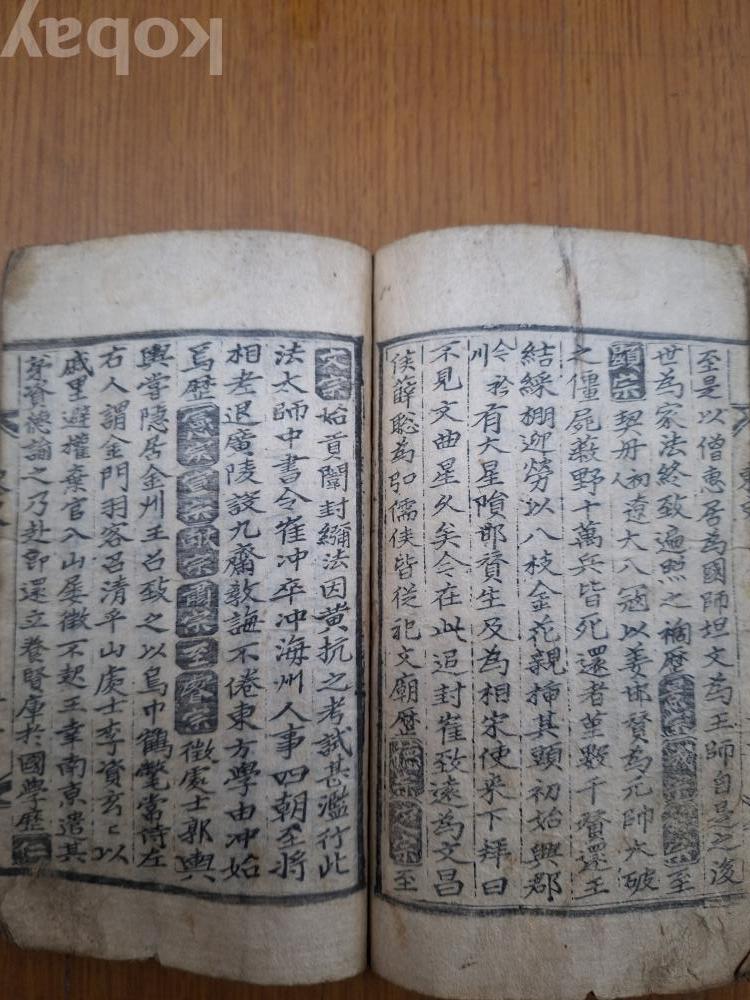 至是以僧惠居為國師坦文為王師自是之後
世為家法終致遍照之禍歷景宗成宗穆宗至
顯宗契丹初遼人大入寇以姜邯贊為元帥大破
之僵屍蔽野十萬兵皆死還者堇數千贊還王
結綵棚迎勞以八枝金花親揷其頭初始興郡
今衿川有大星隕邯贊生及為相宋使來下拜曰
不見文曲星久矣今在此追封崔致遠為文昌
侯薛聡為弘儒侯皆從祀文廟歷德宗靖宗至
文宗始貢闈封彌法因黄抗之考試甚濫行此
法太師中書令崔冲卒冲海州人事四朝至將
相考退廣陵設九齋敦誨不倦東方學由冲始
焉歷順宗宣宗獻宗肅宗至睿宗徵處士郭輿
輿嘗隱居金州王召致之以烏巾鶴氅常侍左
右人謂金門羽客召清平山處士李資玄〻以
戚里避權棄官入山屡徵不起王幸南京遣其
弟資德諭之乃赴即還立養賢庫於國學歷仁
kobay